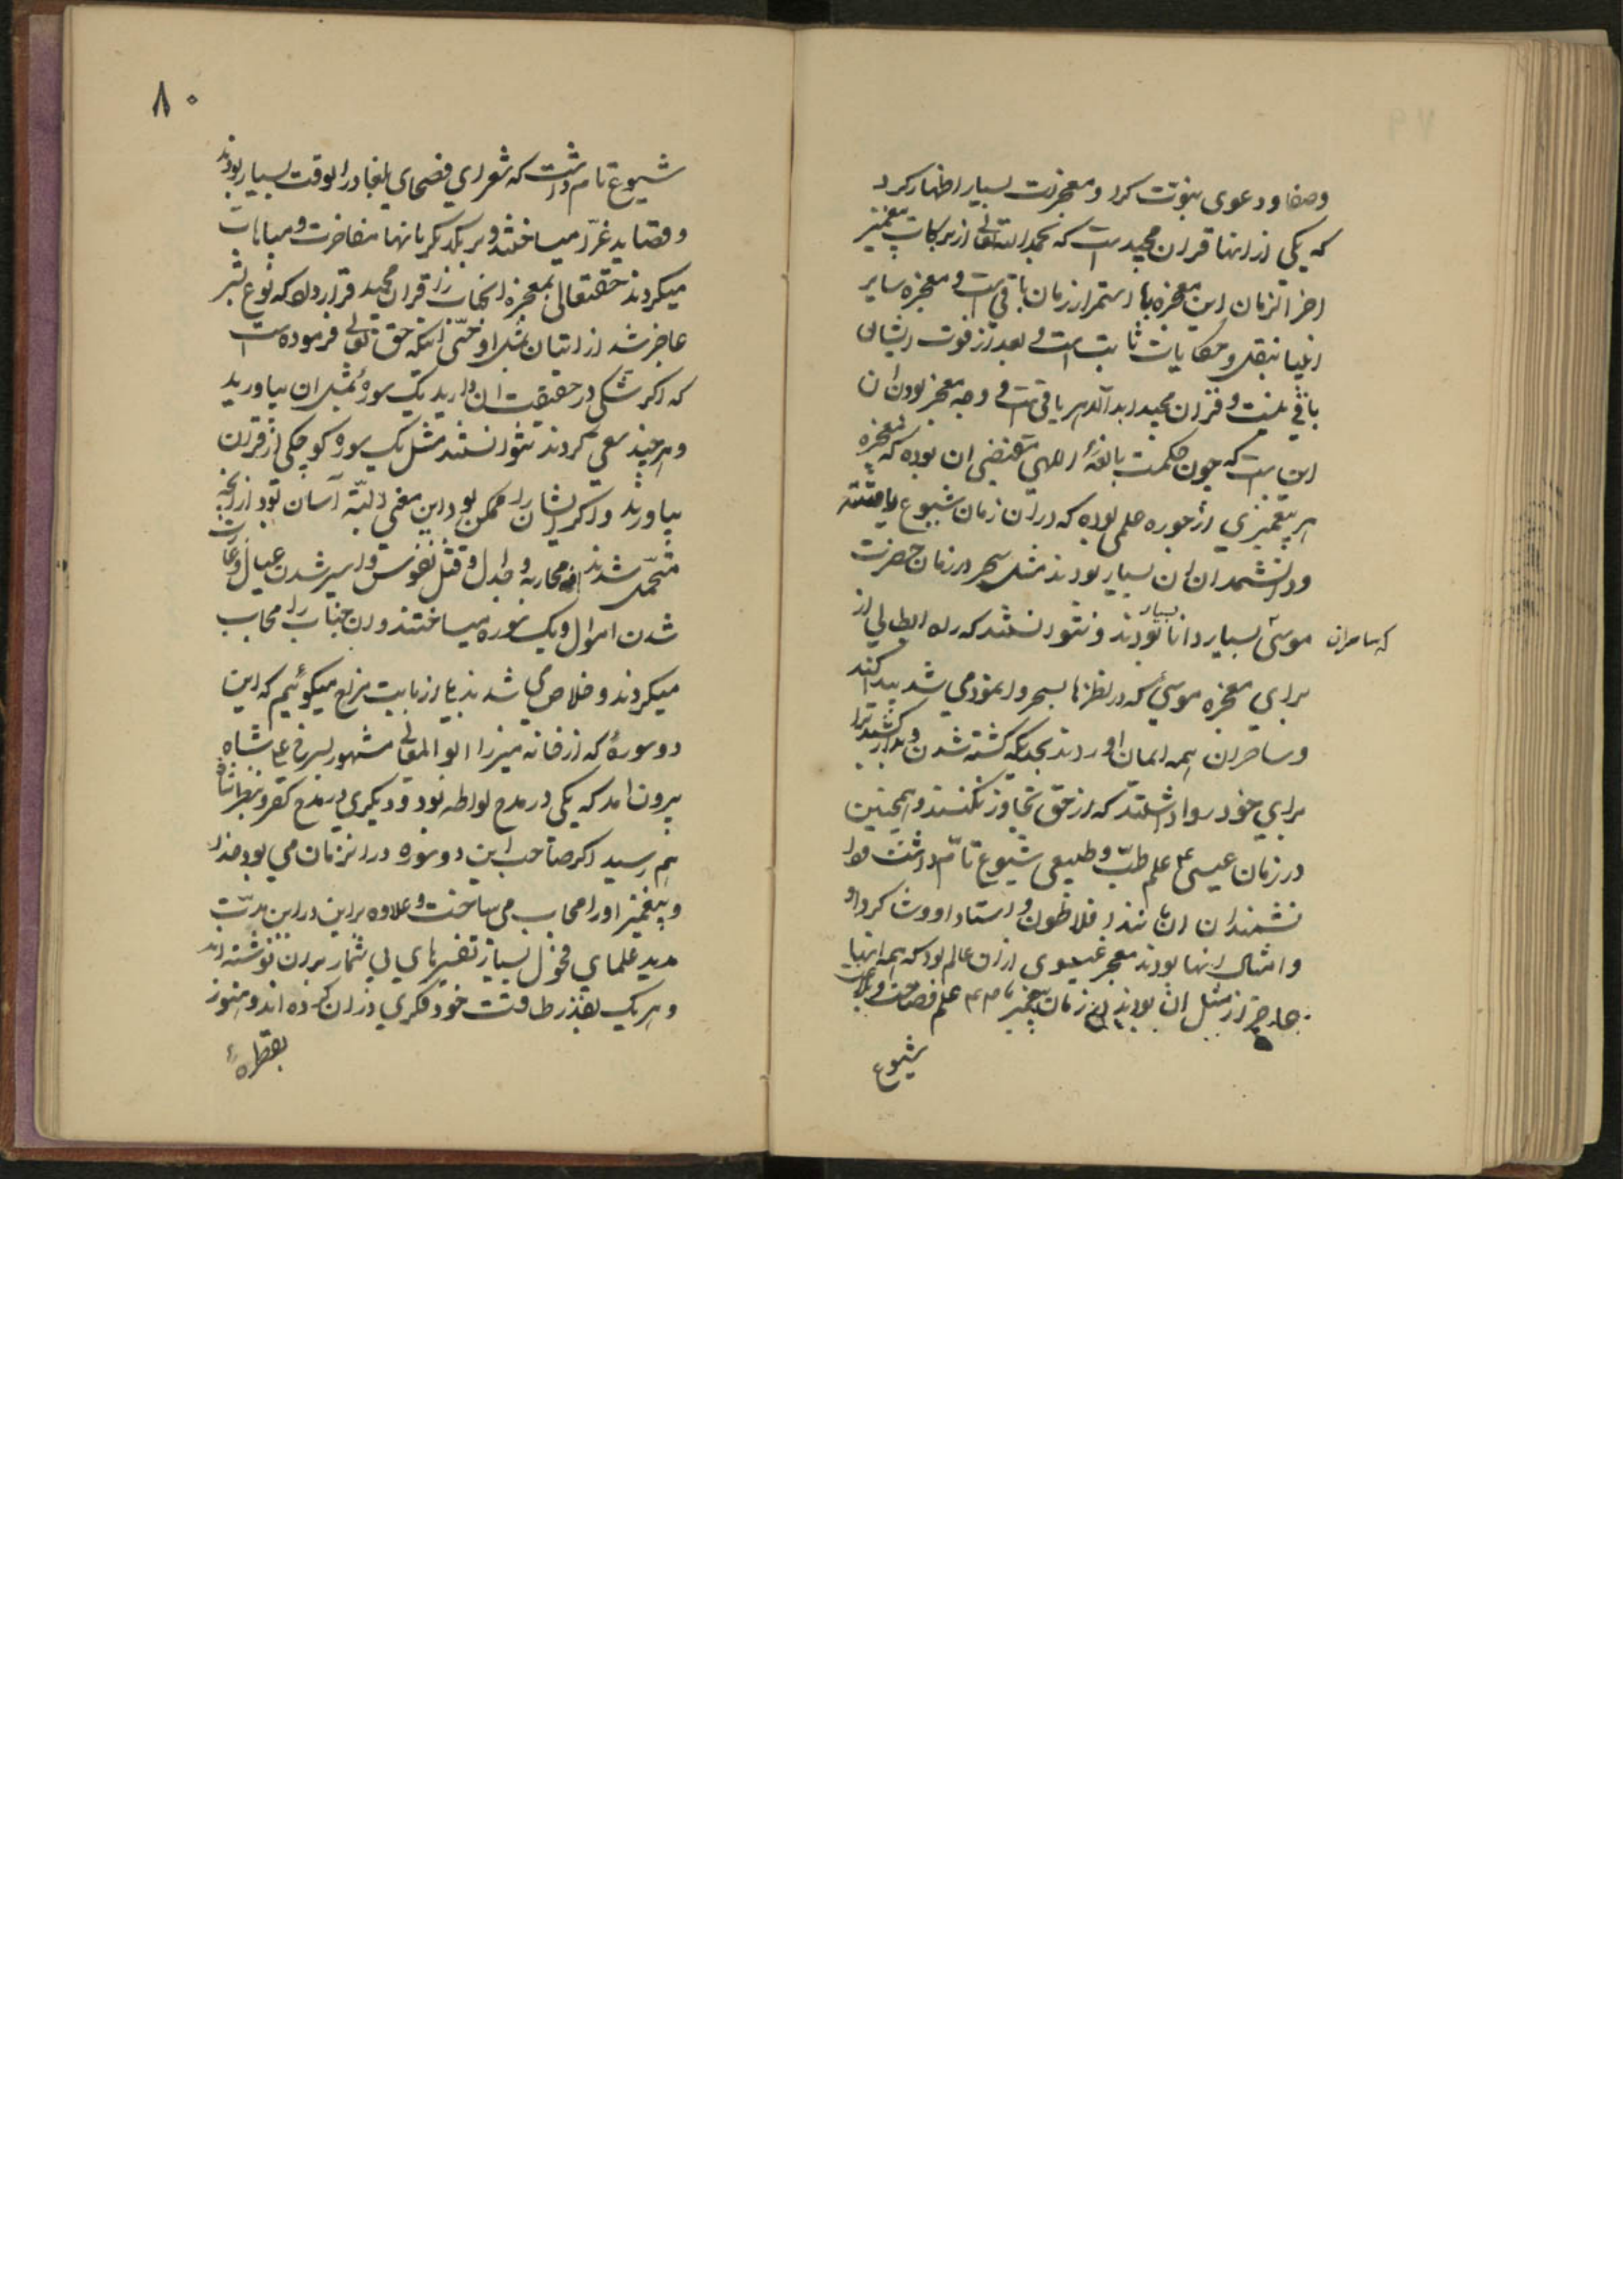 وصفا ودعوی نبوت کرد و معجزات بسیار اظهار کرد
که یکی از انها قران مجید است که بحمد الله تعالی از برکات پیغمبر
اخر الزمان این معجزه با استمرار زمان باقی است و معجزه سایر
انبیا بنقل و حکایات ثابت است و بعد از فوت ایشان
باقی نیست و قران مجید ابد الدهر باقی است و وجه معجز بودن ان
این است که چون حکمت بالغهٔ الهی مقتضی ان بوده که معجزه
هر پیغمبری از جوره علمی بوده که در ان زمان شیوع یافته
ودانشمندان ان بسیار بودند مثل سحر در زمان حضرت
که ساحران موسی بسیار دانا بسیار بودند و نتوانستند که راه ابطالی از
برای معجزه موسی که در نظرها بسحر وا نمود می شد پیدا کنند
و ساحران همه ایمان اوردند بحدیکه کشته شدن و بدار کشیدن را
برای خود روا داشتند که از حق تجاوز نکنند و همچنین
در زمان عیسی ع علم طب و طبیعی شیوع تام داشت و دا
نشمندان ان مانند افلاطون و استاد او و شاکرد او
و امثال اینها بودند معجز عیسوی از ان عالم بود که همه انها
عاجز از مثل ان بودند در زمان پیغمبر ما ص علم فصاحت و بلاغت
شیوع
۸۰
شیوع تام داشت که شعرای فصحای بلغا در انوقت بسیار بودند
و قصاید غرا میساختند و بر یکدیکر بانها مفاخرت و مباهات
میکردند حقتعالی معجزه انجناب را از قران مجید قرار داد که نوع بشر
عاجز شد از اتیان بمثل او حتی انکه حق تعالی فرموده است
که اکر شکی در حقیقت ان دارید یک سورهٔ بمثل ان بیاورید
و هر چند سعی کردند نتوانستند مثل یک سوره کوچکی از قران
بیاورند و اکر ایشان را ممکن بود این معنی البته آسان تر بود از انچه
متحمل شدند از محاربه و جدال و قتل نفوس و اسیر شدن عیال و غارت
شدن اموال و یک سوره میساختند و ان جناب را مجاب
میکردند و خلاص می شدند ما از بابت مزاح میکوئیم که این
دو سورهٔ که از خانه میرزا ابو المعالی مشهور
بیرون امد که یکی در مدح لواطه بود و دیکری در مدح کفر و
بهم رسید اکر صاحب این دو سوره در انزمان می بود خدا
و پیغمبر او را مجاب می ساخت و علاوه براین در این مدت
مدید علمای فحول بسیار تفسیرهای بی شمار بر ان نوشته اند
و هر یک بقدر طاقت خود فکری در ان کرده اند و هنوز
بقطرهٔ